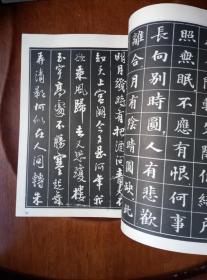 照無眠不應有恨何事
長向別時圓人有悲歡
離合月有陰晴圓缺此
明月幾時有把酒問青天不
知天上宮闕今夕是何年我
欲乘風歸去又恐瓊樓
玉宇高處不勝寒起舞
弄清影何似在人間轉朱